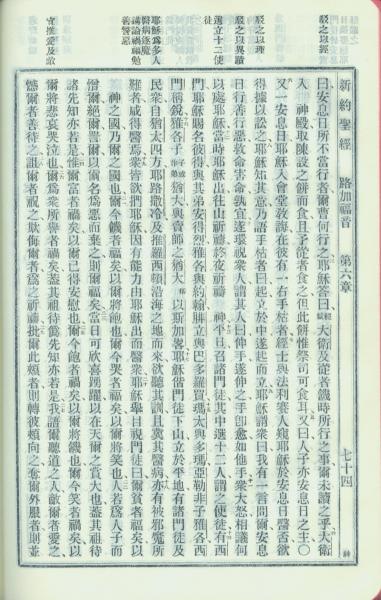 駁之以經
駁之以理
駁之以異蹟
選立十二使
徒
耶穌爲多人
醫病逐魔
講論禍福勉
善警惡
宜推愛及敵
新約聖經 路加福音 第六章 七十四
曰安息日所不當行者爾曹何行之耶穌答曰大衛及從者饑時所行之事爾未讀之乎大衛
入 神殿取陳設之餅而食且予從者食之但此餅惟祭司可食耳又曰人子亦安息日之主○
又一安息日耶穌入會堂敎誨在彼有一右手枯者經士與法利賽人窺耶穌於安息日醫否欲
得據以訟之耶穌知其意乃語手枯者曰起立於中遂起而立耶穌謂衆曰我有一言問爾安息
日行善行惡救命害命孰宜遂環視衆人謂其人曰伸手遂伸之手卽愈如他手衆大怒相議何
以處耶穌當時耶穌出往山祈禱終夜祈禱 神平旦召諸門徒其中選十二人謂之使徒有西
門耶穌賜名彼得與其弟安得烈雅各與約翰腓立與巴多羅買瑪太與多瑪亞勒非子雅各西
門稱銳雅各子猶大與賣師之猶大以斯加畧耶穌偕門徒下山立於平地有諸門徒及
民衆自猶太四方耶路撒冷及推羅西頓沿海之地而來欲聽其訓且冀其醫病亦有被邪魔所
難者咸得醫焉衆皆欲捫耶穌因有能力由耶穌出而醫衆耶穌舉目視門徒曰爾貧者福矣以
神之國乃爾之國也爾今饑者福矣以爾將飽也爾今哭者福矣以爾將笑也人若爲人子而
憎爾絕爾詈爾以爾名爲惡而棄之則爾福矣當日可欣喜踴躍以在天爾之賞大也蓋其祖待
諸先知亦若是惟爾富者禍矣以爾已得安慰也爾今飽者禍矣以爾將饑也爾今笑者禍矣以
爾將悲哀哭泣也爾爲衆所譽者禍矣蓋其祖待僞先知亦若是我語爾聽道之人敵爾者愛之
憾爾者善待之詛爾者祝之欺侮爾者爲之祈禱批爾此頰者則轉彼頰向之奪爾外服者則並